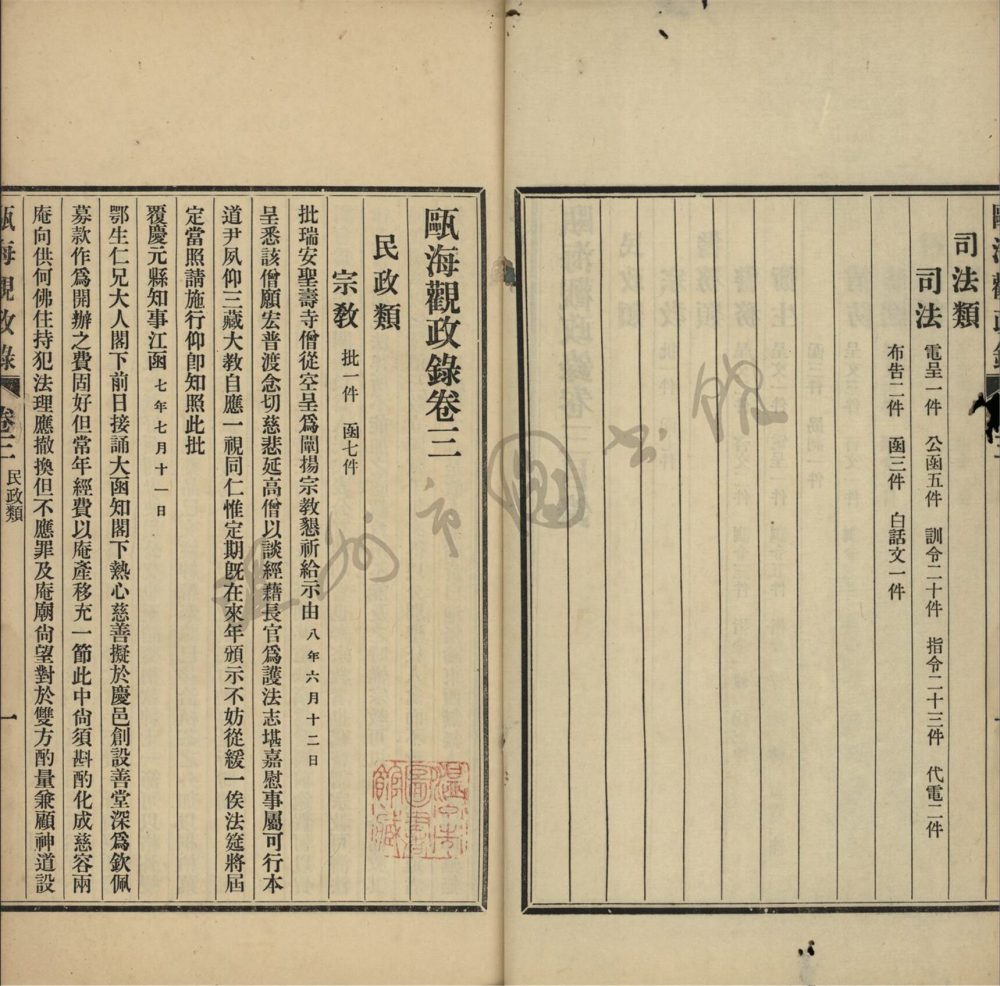 司法類
司法
電呈一件 公函五件 訓令二十件 指令二十三件 代電二件
布告二件 函三件 白話文一件
甌海觀政錄卷三
民政類
宗教 批一件 函七件
批瑞安聖壽寺僧從空呈爲闡揚宗教懇祈給示由 八年六月十二日
呈悉該僧願宏普渡念切慈悲延高僧以談經藉長官爲護法志堪嘉慰事屬可行本
道尹夙仰三藏大教自應一視同仁惟定期既在來年頒示不妨從緩一俟法筵將屆
定當照請施行仰卽知照此批
覆慶元縣知事江函 七年七月十一日
鄂生仁兄大人閣下前日接誦大函知閣下熱心慈善擬於慶邑創設善堂深爲欽佩
募款作爲開辦之費固好但常年經費以庵產移充一節此中尙須斟酌化成慈容兩
庵向供何佛住持犯法理應撤換但不應罪及庵廟尙望對於雙方酌量兼顧神道設
甌海觀政錄 卷三 民政類 一
溫州市圖書館
溫州市圖書館藏